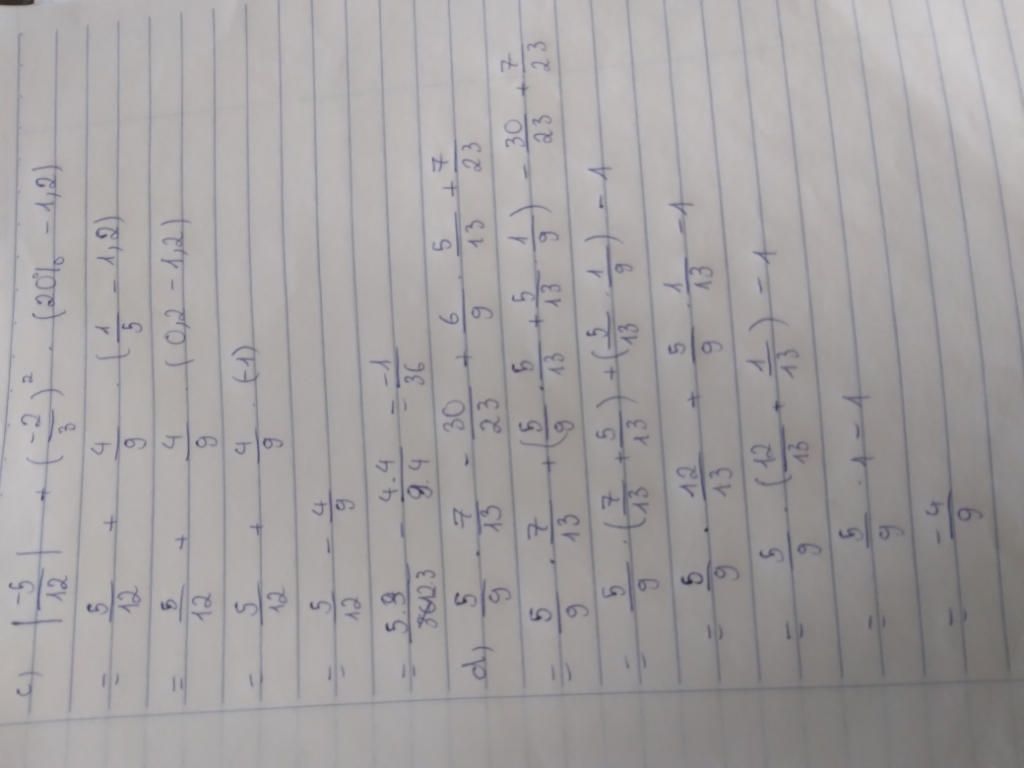 c) |-5/12| + (-2/3)² . (20% - 1,2)
= 5/12 + 4/9 . (1/5 - 1,2)
= 5/12 + 4/9 . (0,2 - 1,2)
= 5/12 + 4/9 . (-1)
= 5/12 - 4/9
= 5.3/12.3 - 4.4/9.4 = -1/36
d) 5/9 . 7/13 - 30/23 + 6/9 . 5/13 + 7/23
= 5/9 . 7/13 + (5/9 . 5/13 + 5/13 . 1/9) - 30/23 + 7/23
= 5/9 . (7/13 + 5/13) + (5/13 . 1/9) - 1
= 5/9 . 12/13 + 5/9 . 1/13 - 1
= 5/9 . (12/13 + 1/13) - 1
= 5/9 . 1 - 1
= -4/9